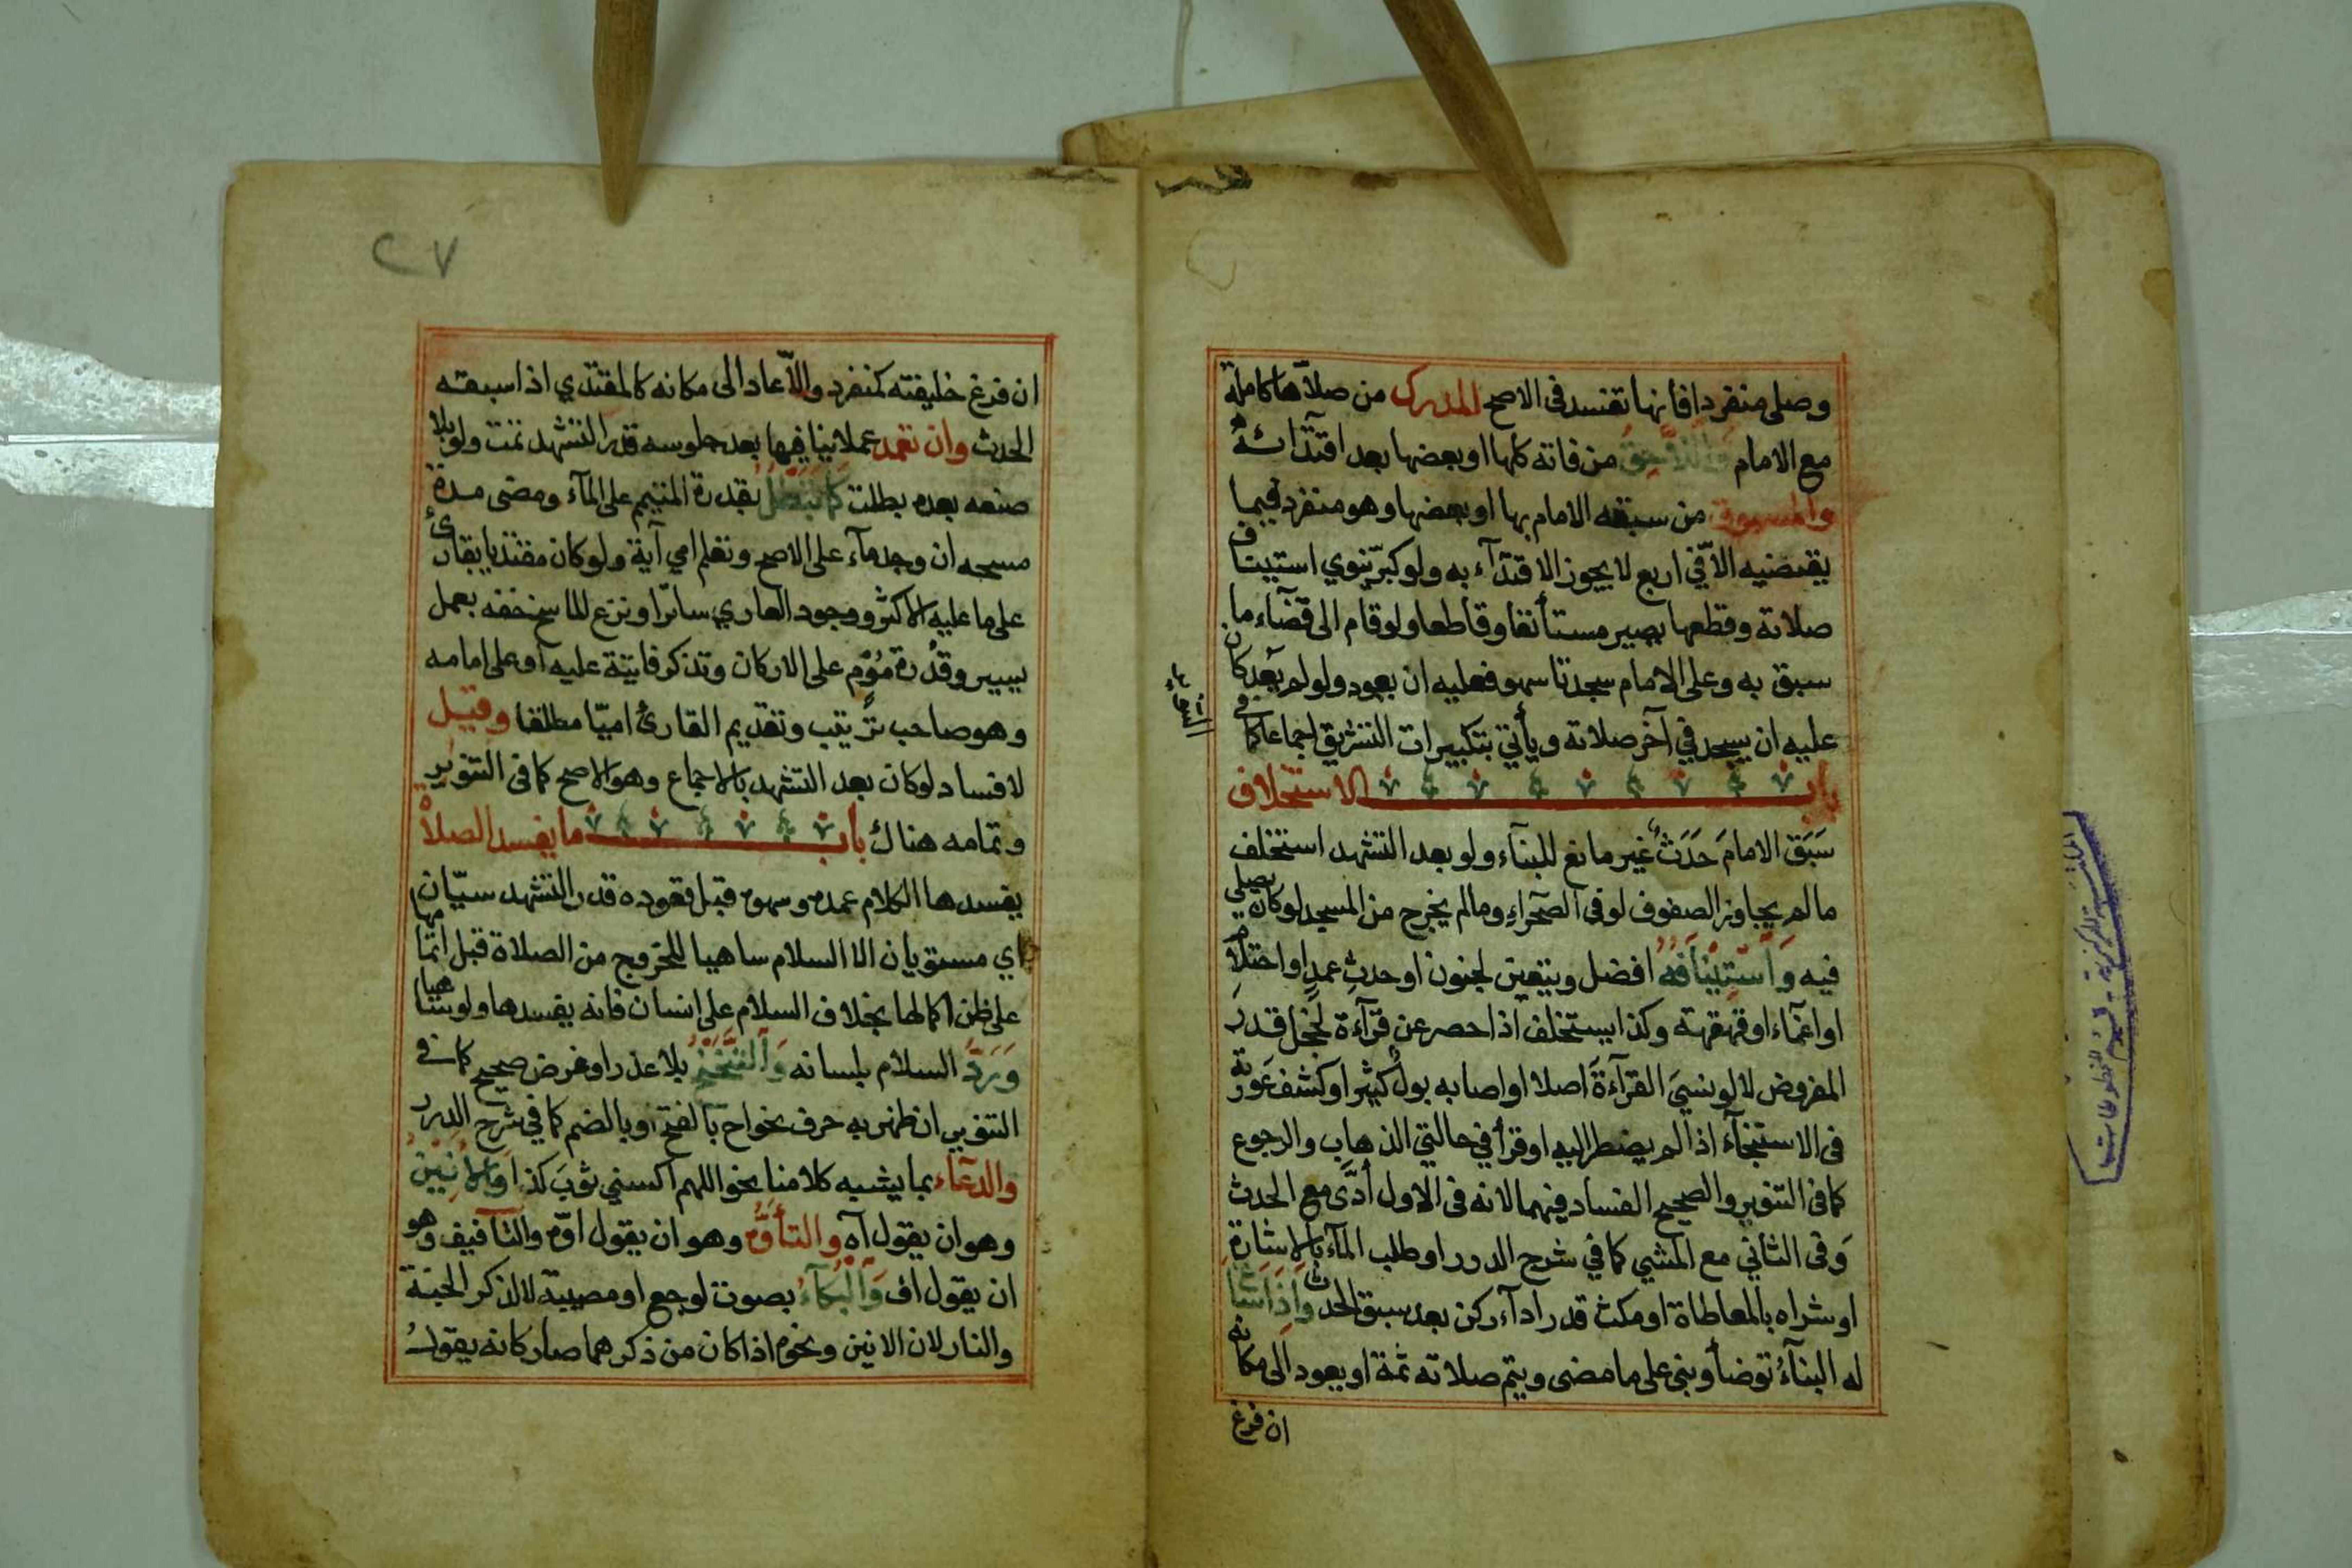 وصلى منفردا فانها تفسد فى الاصح المدرك من صلاها كاملة
مع الامام واللاحق من فاته كلها او بعضها بعد اقتدائه
والمسبوق من سبقه الامام بها او بعضها وهو منفرد فيما
يقضيه الا فى اربع لا يجوز الاقتدآء به ولو كبر ينوي استيناف
صلاته وقطعها يصير مستأنفا وقاطعا ولو قام الى قضآء ما
سبق به وعلى الامام سجدتا سهو فعليه ان يعود ولو لم يعد كان
عليه ان يسجد في آخر صلاته ويأتي بتكبيرات التشريق اجماعا كما في
باب الاستخلاف
سَبَق الامامَ حَدَثٌ غير مانع للبنآء ولو بعد التشهد استخلف
مالم يجاوز الصفوف لو فى الصحراءِ ومالم يخرج من المسجد لو كان يصلي
فيه وَاسْتِينَافُهُ افضل ويتعين لجنون او حدثِ عمدٍ او احتلام
او اغمآء او قهقهة وكذا يستخلف اذا حصر عن قرآءة لخجل قدر
المفروض لا لو نسيَ القرآءةَ اصلا او اصابه بول كثير او كشف عورته
فى الاستنجآء اذا لم يضطر اليه او قرأ في حالتي الذهاب والرجوع
كما فى التنوير والصحيح الفساد فيهما لانه فى الاول أدَّى مع الحدث
وَفى الثاني مع المشي كما في شرح الدرر او طلب المآء بالاشارة
او شراه بالمعاطاة او مكث قدر ادآء ركن بعد سبق الحدث وَاِذَا سَاغَ
له البنآءُ توضأ وبنى على ما مضى ويتم صلاته ثمة او يعود الى مكانه
ان فرغ
٢٧
ان فرغ خليفته كمنفرد والّا عاد الى مكانه كالمقتدي اذا سبقه
الحدث وان تعمد عملا ينافيها بعد جلوسه قدر التشهد تمت ولو بلا
صنعه بعده بطلت كما تَبْطُلُ بقدرة المتيمم على المآء ومضى مدة
مسحه ان وجد مآء على الاصح وتعلم امي آية ولو كان مقتديا بقارئ
على ما عليه الاكثر ووجود العاري ساترا ونزع الماسح خفه بعمل
يسير وقدْرة مُوْمٍ على الاركان وتذكر فايتة عليه او على امامه
وهو صاحب ترتيب وتقديم القارئ اميّا مطلقا وقيل
لا فساد لو كان بعد التشهد بالاجماع وهو الاصح كما فى التنوير
وتمامه هناك باب ما يفسد الصلاة
يفسدها الكلام عمده وسهوه قبل قعوده قدر التشهد سيّان
اي مستويان الا السلام ساهيا للخروج من الصلاة قبل اتمامها
على ظن اكمالها بخلاف السلام على انسان فانه يفسدها ولو ساهيا
وَرَدُّ السلام بلسانه وَالتَّنَحْنُحُ بلا عذر او غرض صحيح كما فى
التنوير ان ظهر به حرف نحو اح بالفتح او بالضم كما في شرح الدرر
والدعآء بما يشبه كلامنا نحو اللهم اكسني ثوبَ كذا وَالاَنِينُ
وهو ان يقول آه والتأوُّه وهو ان يقول اوّه والتأفيف وهو
ان يقول اف وَالْبُكَآءُ بصوت لوجع او مصيبة لا لذكر الجنة
والنار لان الانين ونحوه اذا كان من ذكرهما صار كانه يقول